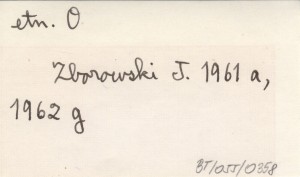 etn. O
Zborowski J. 1961 a,
1962 g
BT/OJJ/0358